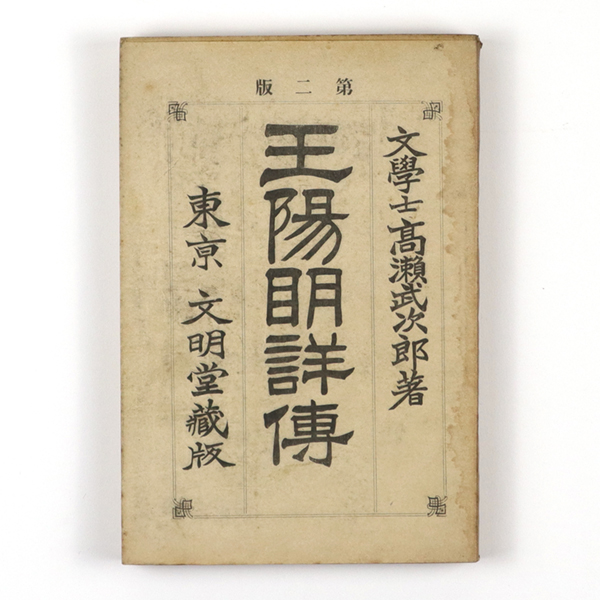 第二版
文學士高瀨武次郎著
王陽明詳傳
東京 文明堂藏版